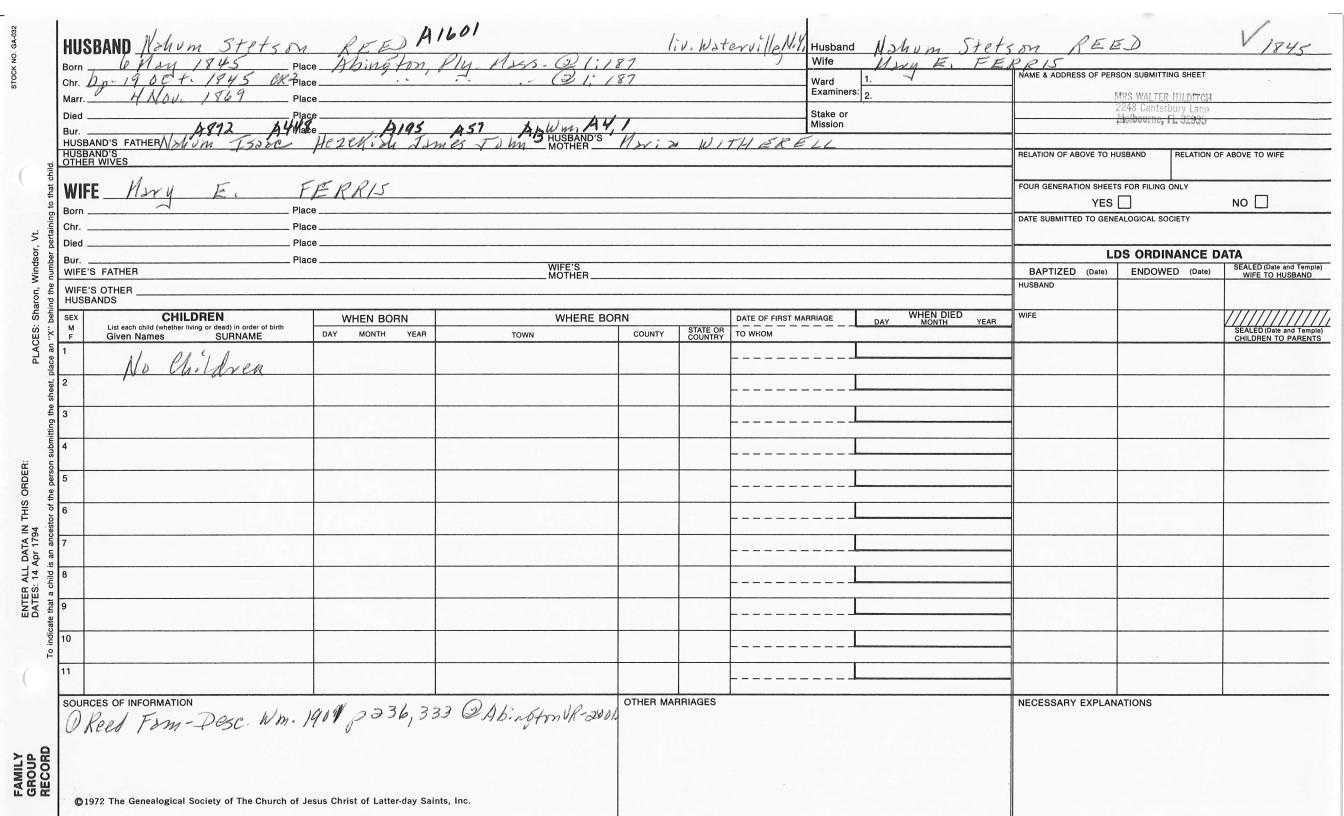 STOCK NO. GA-032
HUSBAND Nahum Stetson REED A1601 liv. Waterville, N.Y.
Born 6 May 1845 Place Abington, Ply. Mass. @ 1:187
Chr. bp. 19 Oct. 1845 CR2 Place " " " @ 1:187
Marr. 4 Nov. 1869 Place
Died Place
Bur. Place
A872 A448 A195 A57 A13 Wm. A4,1
HUSBAND'S FATHER Nahum Isaac Hezekiah James John HUSBAND'S MOTHER Maria WITHERELL
HUSBAND'S OTHER WIVES
WIFE Mary E. FERRIS
Born Place
Chr. Place
Died Place
Bur. Place
WIFE'S FATHER WIFE'S MOTHER
WIFE'S OTHER HUSBANDS
Husband Nahum Stetson REED √ 1845
Wife Mary E. FERRIS
Ward Examiners: 1.
2.
Stake or Mission
NAME & ADDRESS OF PERSON SUBMITTING SHEET
MRS WALTER HILDITCH
2248 Canterbury Lane
Melbourne, FL 32935
RELATION OF ABOVE TO HUSBAND RELATION OF ABOVE TO WIFE
FOUR GENERATION SHEETS FOR FILING ONLY
YES NO
DATE SUBMITTED TO GENEALOGICAL SOCIETY
LDS ORDINANCE DATA
BAPTIZED (Date) ENDOWED (Date) SEALED (Date and Temple) WIFE TO HUSBAND
HUSBAND
WIFE
SEALED (Date and Temple) CHILDREN TO PARENTS
SEX M F
CHILDREN
List each child (whether living or dead) in order of birth
Given Names SURNAME
WHEN BORN
DAY MONTH YEAR
WHERE BORN
TOWN COUNTY STATE OR COUNTRY
DATE OF FIRST MARRIAGE
TO WHOM
WHEN DIED
DAY MONTH YEAR
1 No Children
2
3
4
5
6
7
8
9
10
11
SOURCES OF INFORMATION
① Reed Fam-Desc. Wm. 1901 p236, 333 ② Abington VR-
OTHER MARRIAGES
NECESSARY EXPLANATIONS
©1972 The Genealogical Society of The Church of Jesus Christ of Latter-day Saints, Inc.
PLACES: Sharon, Windsor, Vt.
To indicate that a child is an ancestor of the person submitting the sheet, place an "X" behind the number pertaining to that child.
ENTER ALL DATA IN THIS ORDER:
DATES: 14 Apr 1794
FAMILY GROUP RECORD